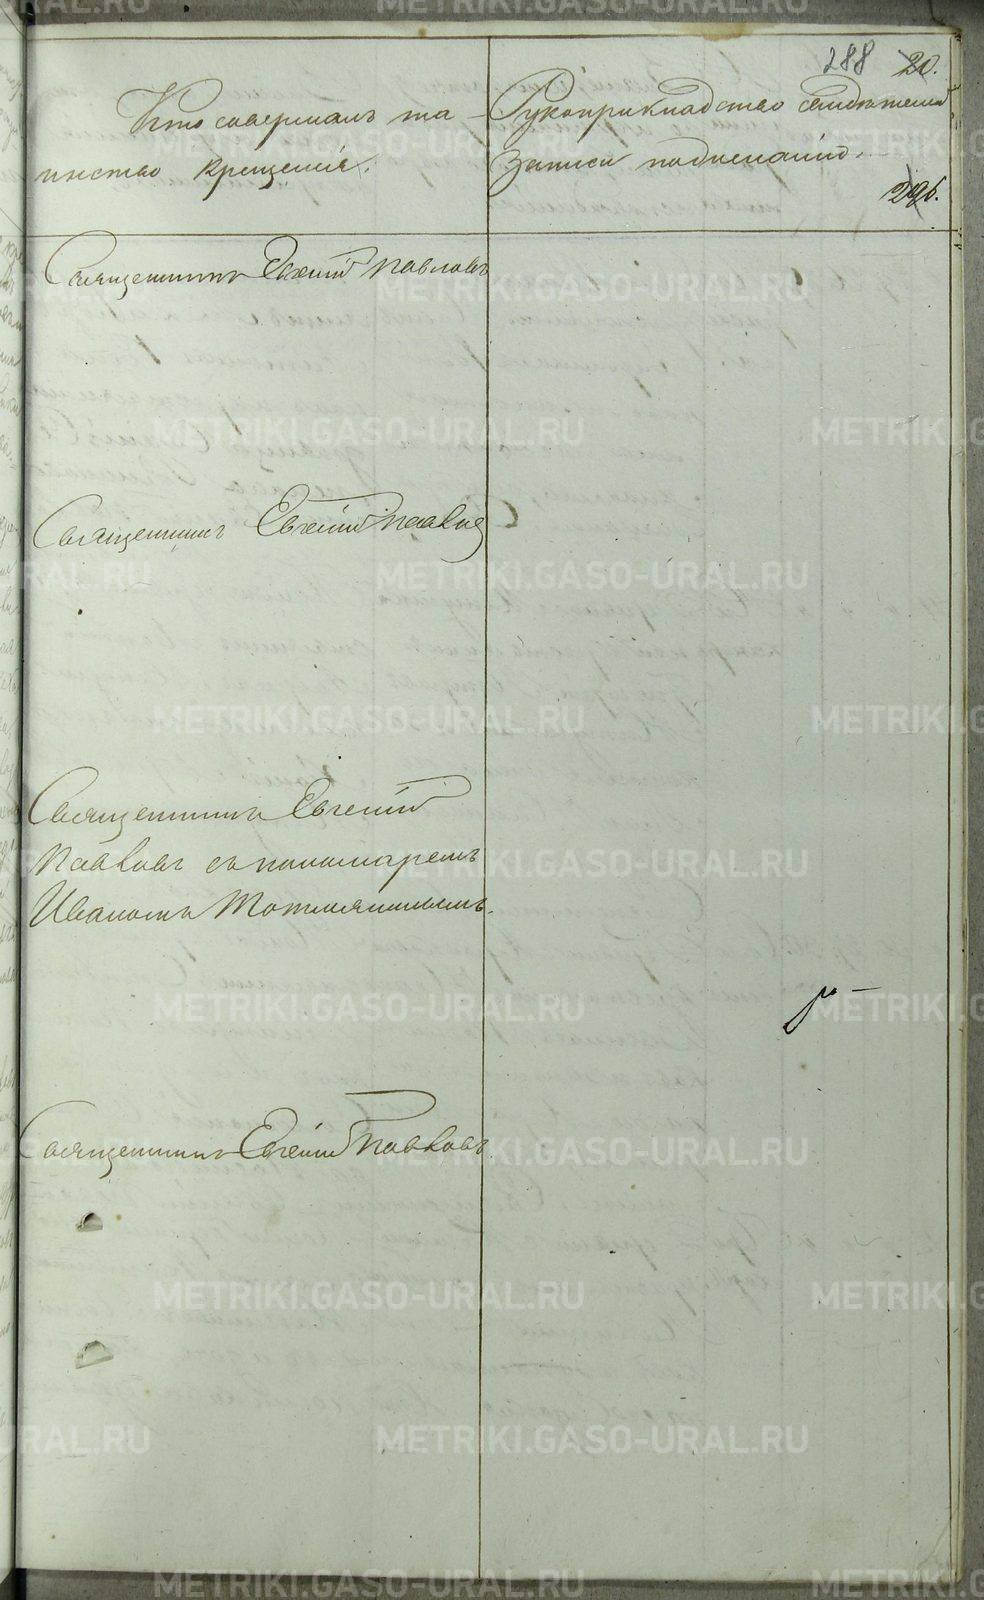 288 20.
Кто совершалъ та-
инство крещенія.
Рукоприкладство свидѣтелей
записи по желанію.
296.
Священникъ Евгеній Павловъ
Священникъ Евгеній Павловъ
Священникъ Евгеній
Павловъ съ пономаремъ
Иваномъ
Священникъ Евгеній Павловъ
METRIKI.GASO-URAL.RU